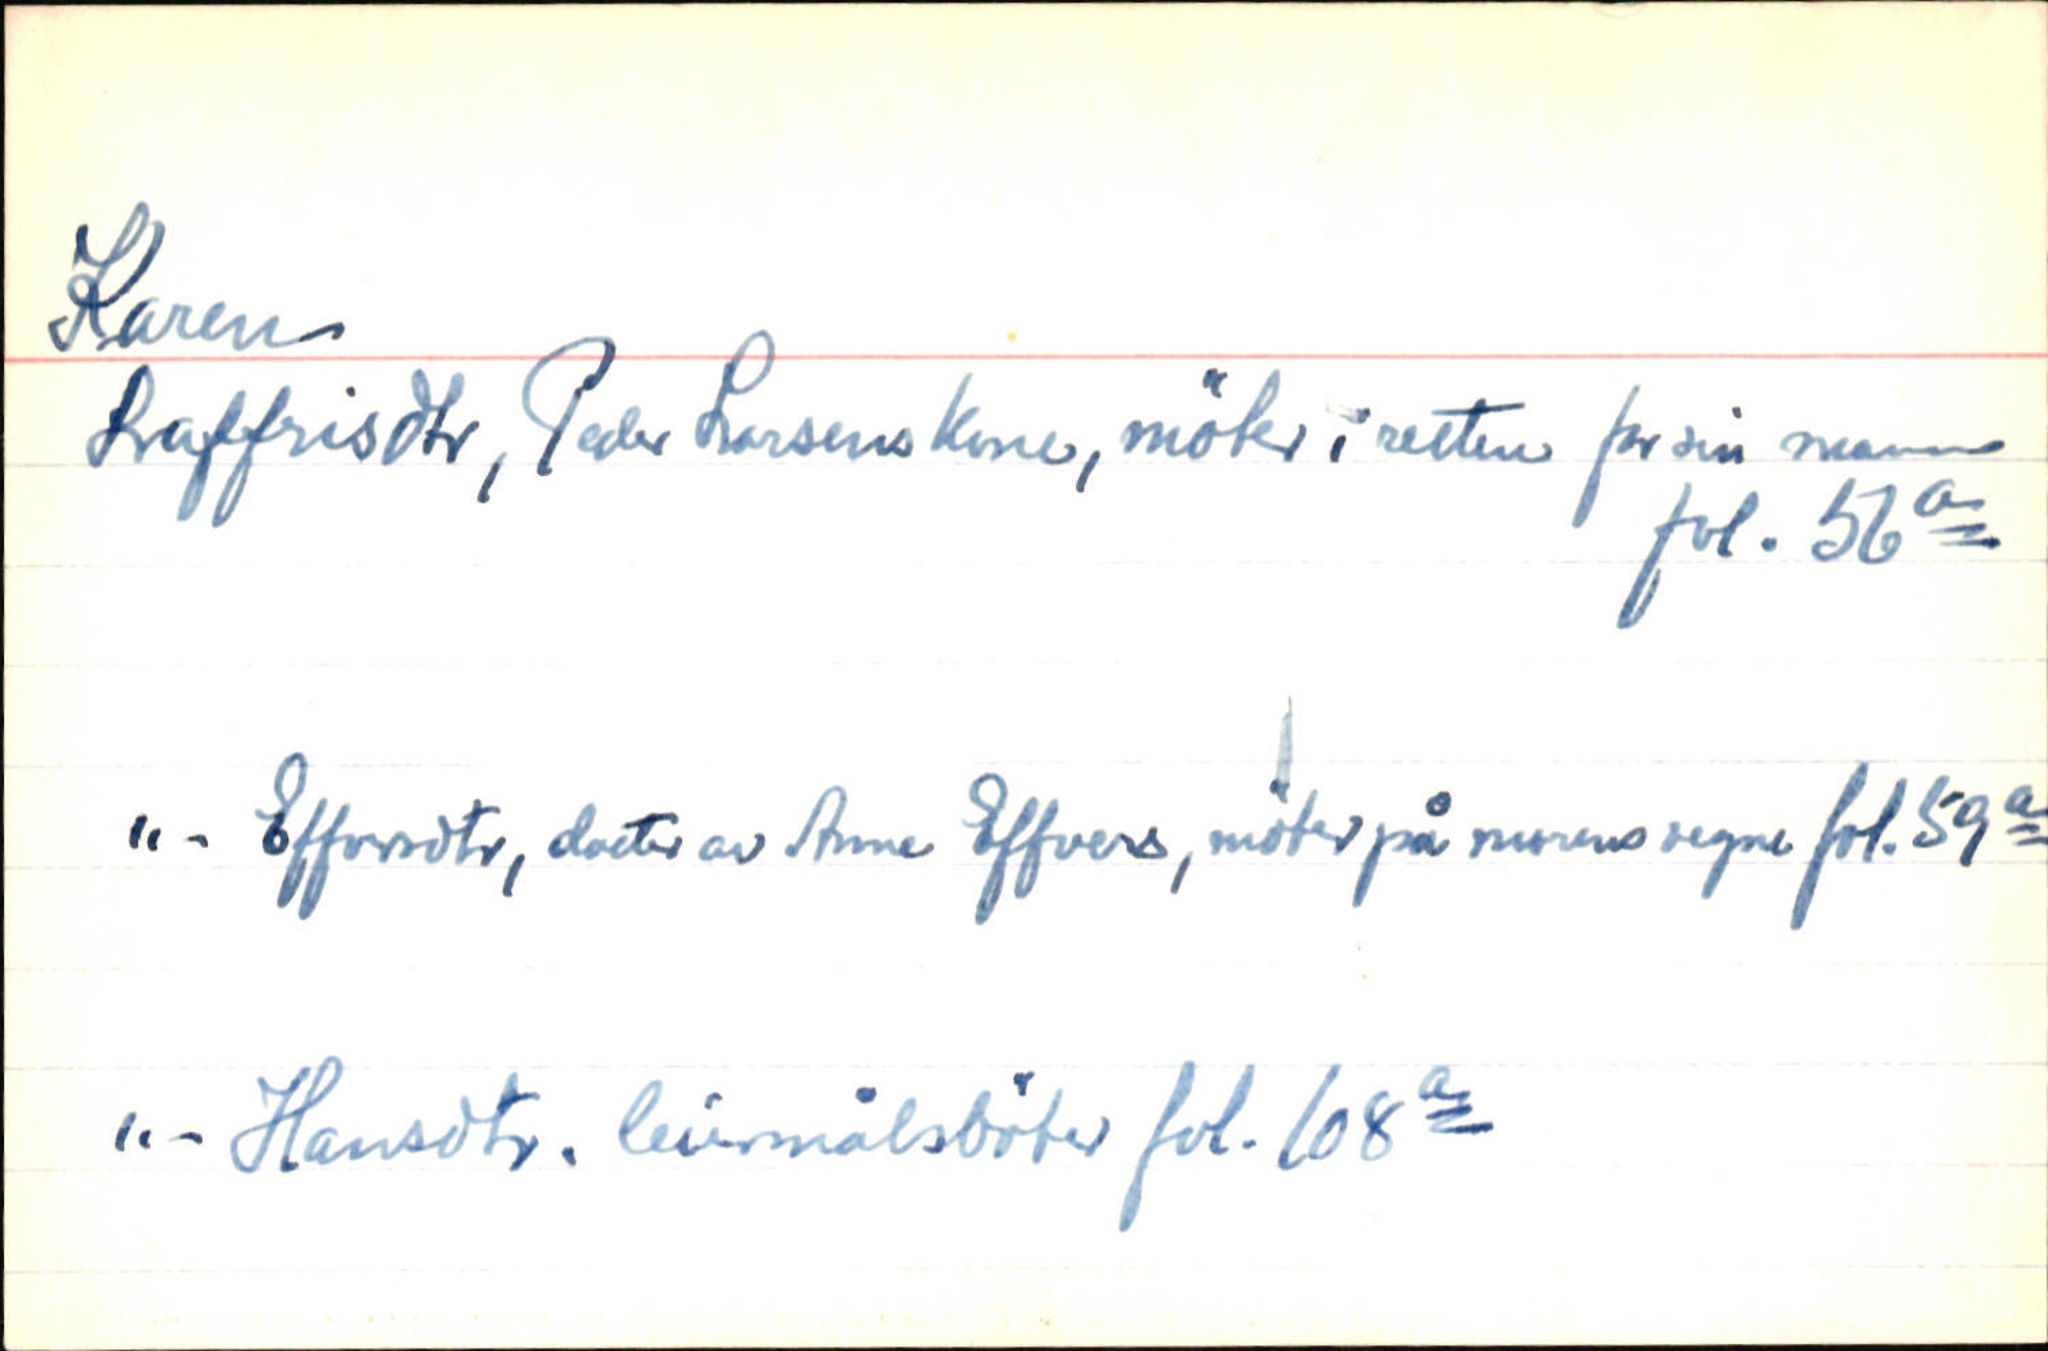 Karen
Laffrisdtr, Peder Larsens kone, möter i retten for sin mann
fol. 56 a
"- Effversdtr, datter av Anne Effvers, möter på morens vegne fol. 59 a
"- Hansdtr. leiermålsböter fol. 108 a